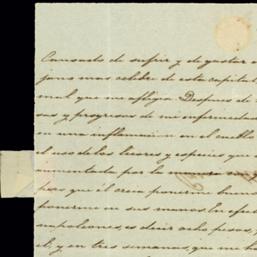 Cansado de sufrir y de gastar
jano mas celebre de esta capital
mal que me aflige. Despues de
sus y progresos de mi enfermedad
en una inflamacion en el cuello
el uso de los licores y especies que
aumentada por la
pero que él creia ponerme bueno
ponerme en sus manos. En efecto
napoleones, es decir ocho pesos,
él, y en tres semanas, que me h